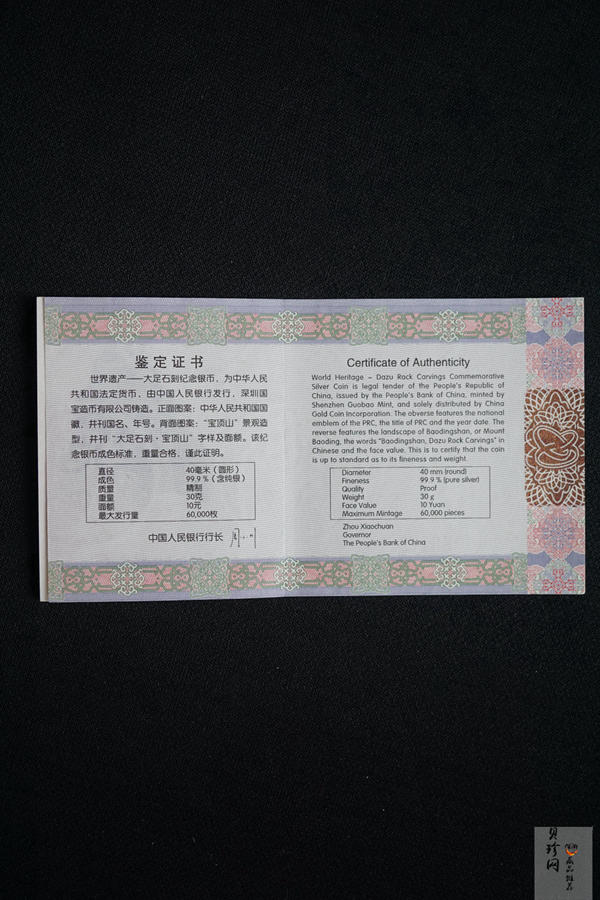 鉴定证书
世界遗产——大足石刻纪念银币，为中华人民
共和国法定货币，由中国人民银行发行，深圳国
宝造币有限公司铸造。正面图案：中华人民共和国国
徽，并刊国名、年号。背面图案：“宝顶山”景观造
型，并刊“大足石刻·宝顶山”字样及面额。该纪
念银币成色标准，重量合格，谨此证明。
直径 40毫米（圆形）
成色 99.9%（含纯银）
质量 精制
重量 30克
面额 10元
最大发行量 60,000枚
中国人民银行行长
Certificate of Authenticity
World Heritage – Dazu Rock Carvings Commemorative
Silver Coin is legal tender of the People's Republic of
China, issued by the People's Bank of China, minted by
Shenzhen Guobao Mint, and solely distributed by China
Gold Coin Incorporation. The obverse features the national
emblem of the PRC, the title of PRC and the year date. The
reverse features the landscape of Baodingshan, or Mount
Baoding, the words "Baodingshan, Dazu Rock Carvings" in
Chinese and the face value. This is to certify that the coin
is up to standard as to its fineness and weight.
Diameter 40 mm (round)
Fineness 99.9 % (pure silver)
Quality Proof
Weight 30 g
Face Value 10 Yuan
Maximum Mintage 60,000 pieces
Zhou Xiaochuan
Governor
The People's Bank of China
贝珍网